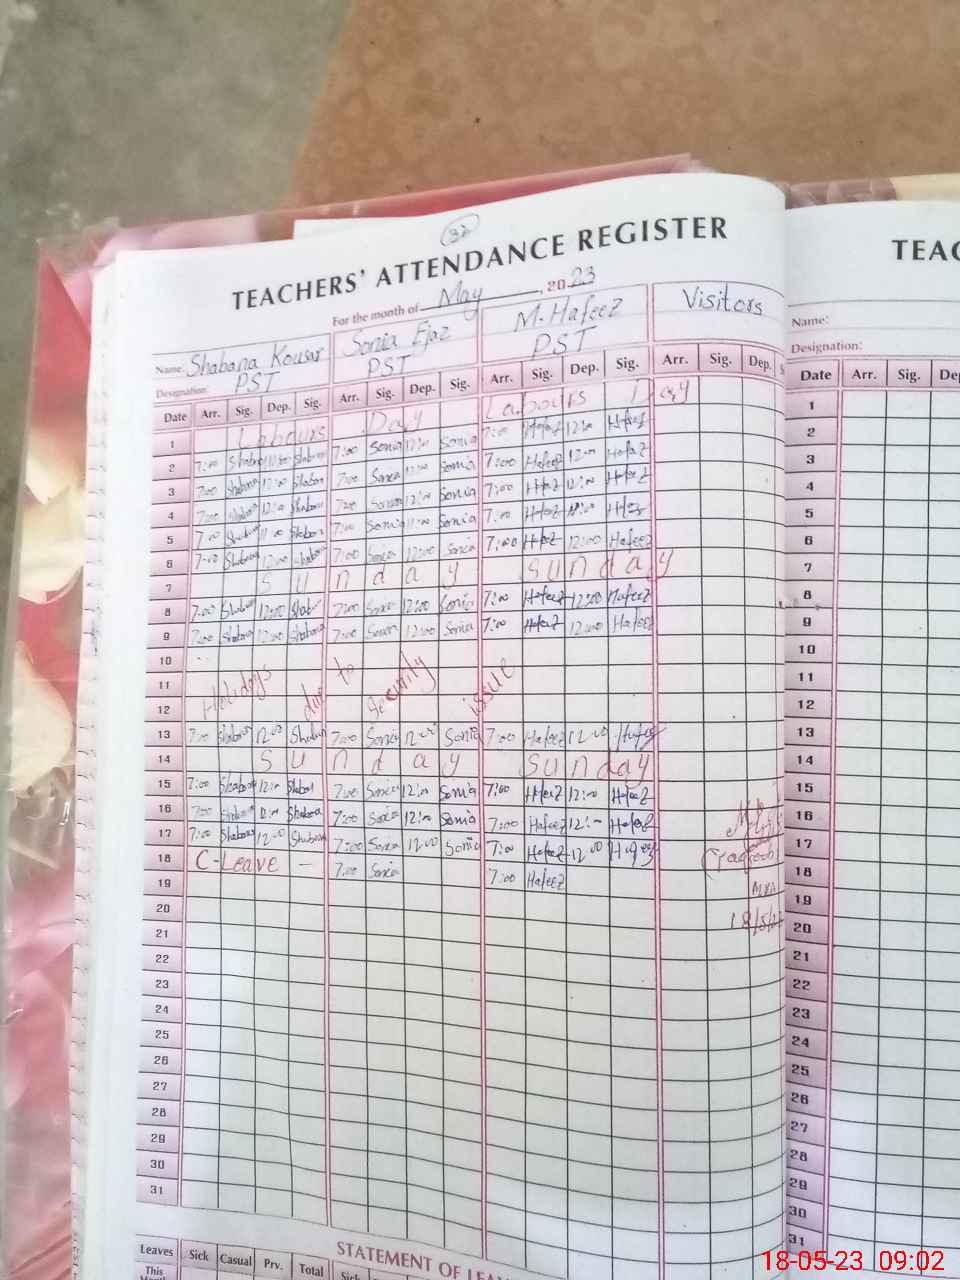 32
TEACHERS' ATTENDANCE REGISTER
For the month of May, 2023
Name: Shabana Kousar Sonia Ejaz M. Hafeez Visitors
Designation: PST PST PST
Date Arr. Sig. Dep. Sig. Arr. Sig. Dep. Sig. Arr. Sig. Dep. Sig. Arr. Sig. Dep. S
1 Labours Day Labours Day
2 7:00 Shabana 12:00 Shabana 7:00 Sonia 12:00 Sonia 7:00 Hafeez 12:00 Hafeez
3 7:00 Shabana 12:00 Shabana 7:00 Sonia 12:00 Sonia 7:00 Hafeez 12:00 Hafeez
4 7:00 Shabana 12:00 Shabana 7:00 Sonia 12:00 Sonia 7:00 Hafeez 12:00 Hafeez
5 7:00 Shabana 11:00 Shabana 7:00 Sonia 11:00 Sonia 7:00 Hafeez Hafeez
6 7:00 Shabana 12:00 Shabana 7:00 Sonia 12:00 Sonia 7:00 Hafeez 12:00 Hafeez
7 Sunday Sunday
8 7:00 Shabana 12:00 Shab 7:00 Sonia 12:00 Sonia 7:00 Hafeez 12:00 Hafeez
9 7:00 Shabana 12:00 Shabana 7:00 Sonia 12:00 Sonia 7:00 Hafeez 12:00 Hafeez
10
11 Holidays due to security issue
12
13 7:00 Shabana 12:00 Shabana 7:00 Sonia 12:00 Sonia 7:00 Hafeez 12:00 Hafeez
14 Sunday Sunday
15 7:00 Shabana 12:00 Shabana 7:00 Sonia 12:00 Sonia 7:00 Hafeez 12:00 Hafeez
16 7:00 Shabana 12:00 Shabana 7:00 Sonia 12:00 Sonia 7:00 Hafeez 12:- Hafeez
17 7:00 Shabana 12:00 Shabana 7:00 Sonia 12:00 Sonia 7:00 Hafeez 12:00 Hafeez
18 C-Leave - 7:00 Sonia 7:00 Hafeez
19
20
21
22
23
24
25
26
27
28
29
30
31
(Yaqoob)
MEA
18/5/
STATEMENT OF LEAV
Leaves Sick Casual Prv. Total Sick
This
TEAC
Name:
Designation:
Date Arr. Sig. Dep
1
2
3
4
5
6
7
8
9
10
11
12
13
14
15
16
17
18
19
20
21
22
23
24
25
26
27
28
29
30
31
18-05-23 09:02